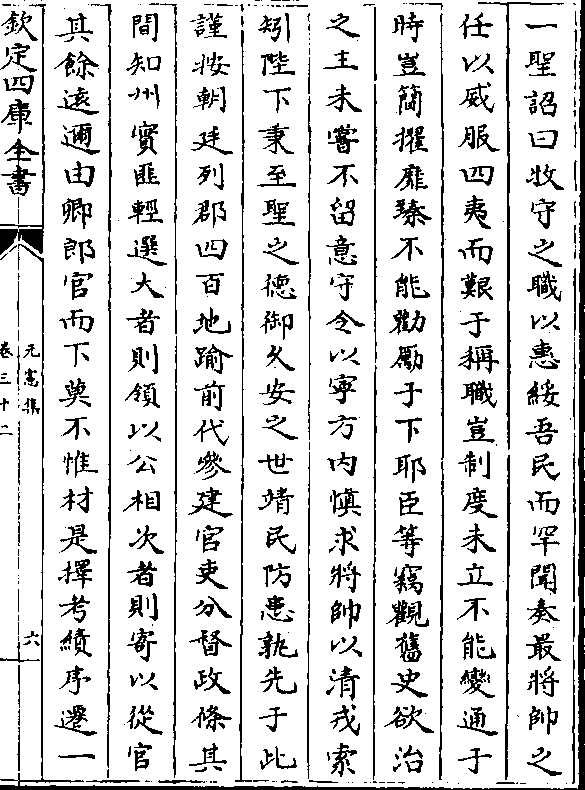 一聖詔曰牧守之職以惠綏吾民而罕聞奏最將帥之
任以威服四夷而艱于稱職豈制度未立不能變通于
時豈簡擢靡臻不能勸勵于下耶臣等竊觀舊史欲治
之主未嘗不留意守令以寧方内慎求將帥以清戎索
矧陛下秉至聖之徳御久安之世靖民防患孰先于此
謹按朝廷列郡四百地踰前代參建官吏分督政條其
間知州實匪輕選大者則領以公相次者則寄以從官
其餘逺邇由卿郎官而下奠不惟材是擇考績序遷一
欽定四庫全書
元憲集
卷三十二
六